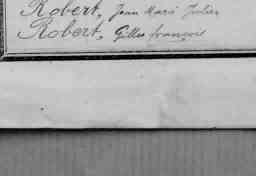 Robert, Jean Marie Julien
Robert, Gilles françois